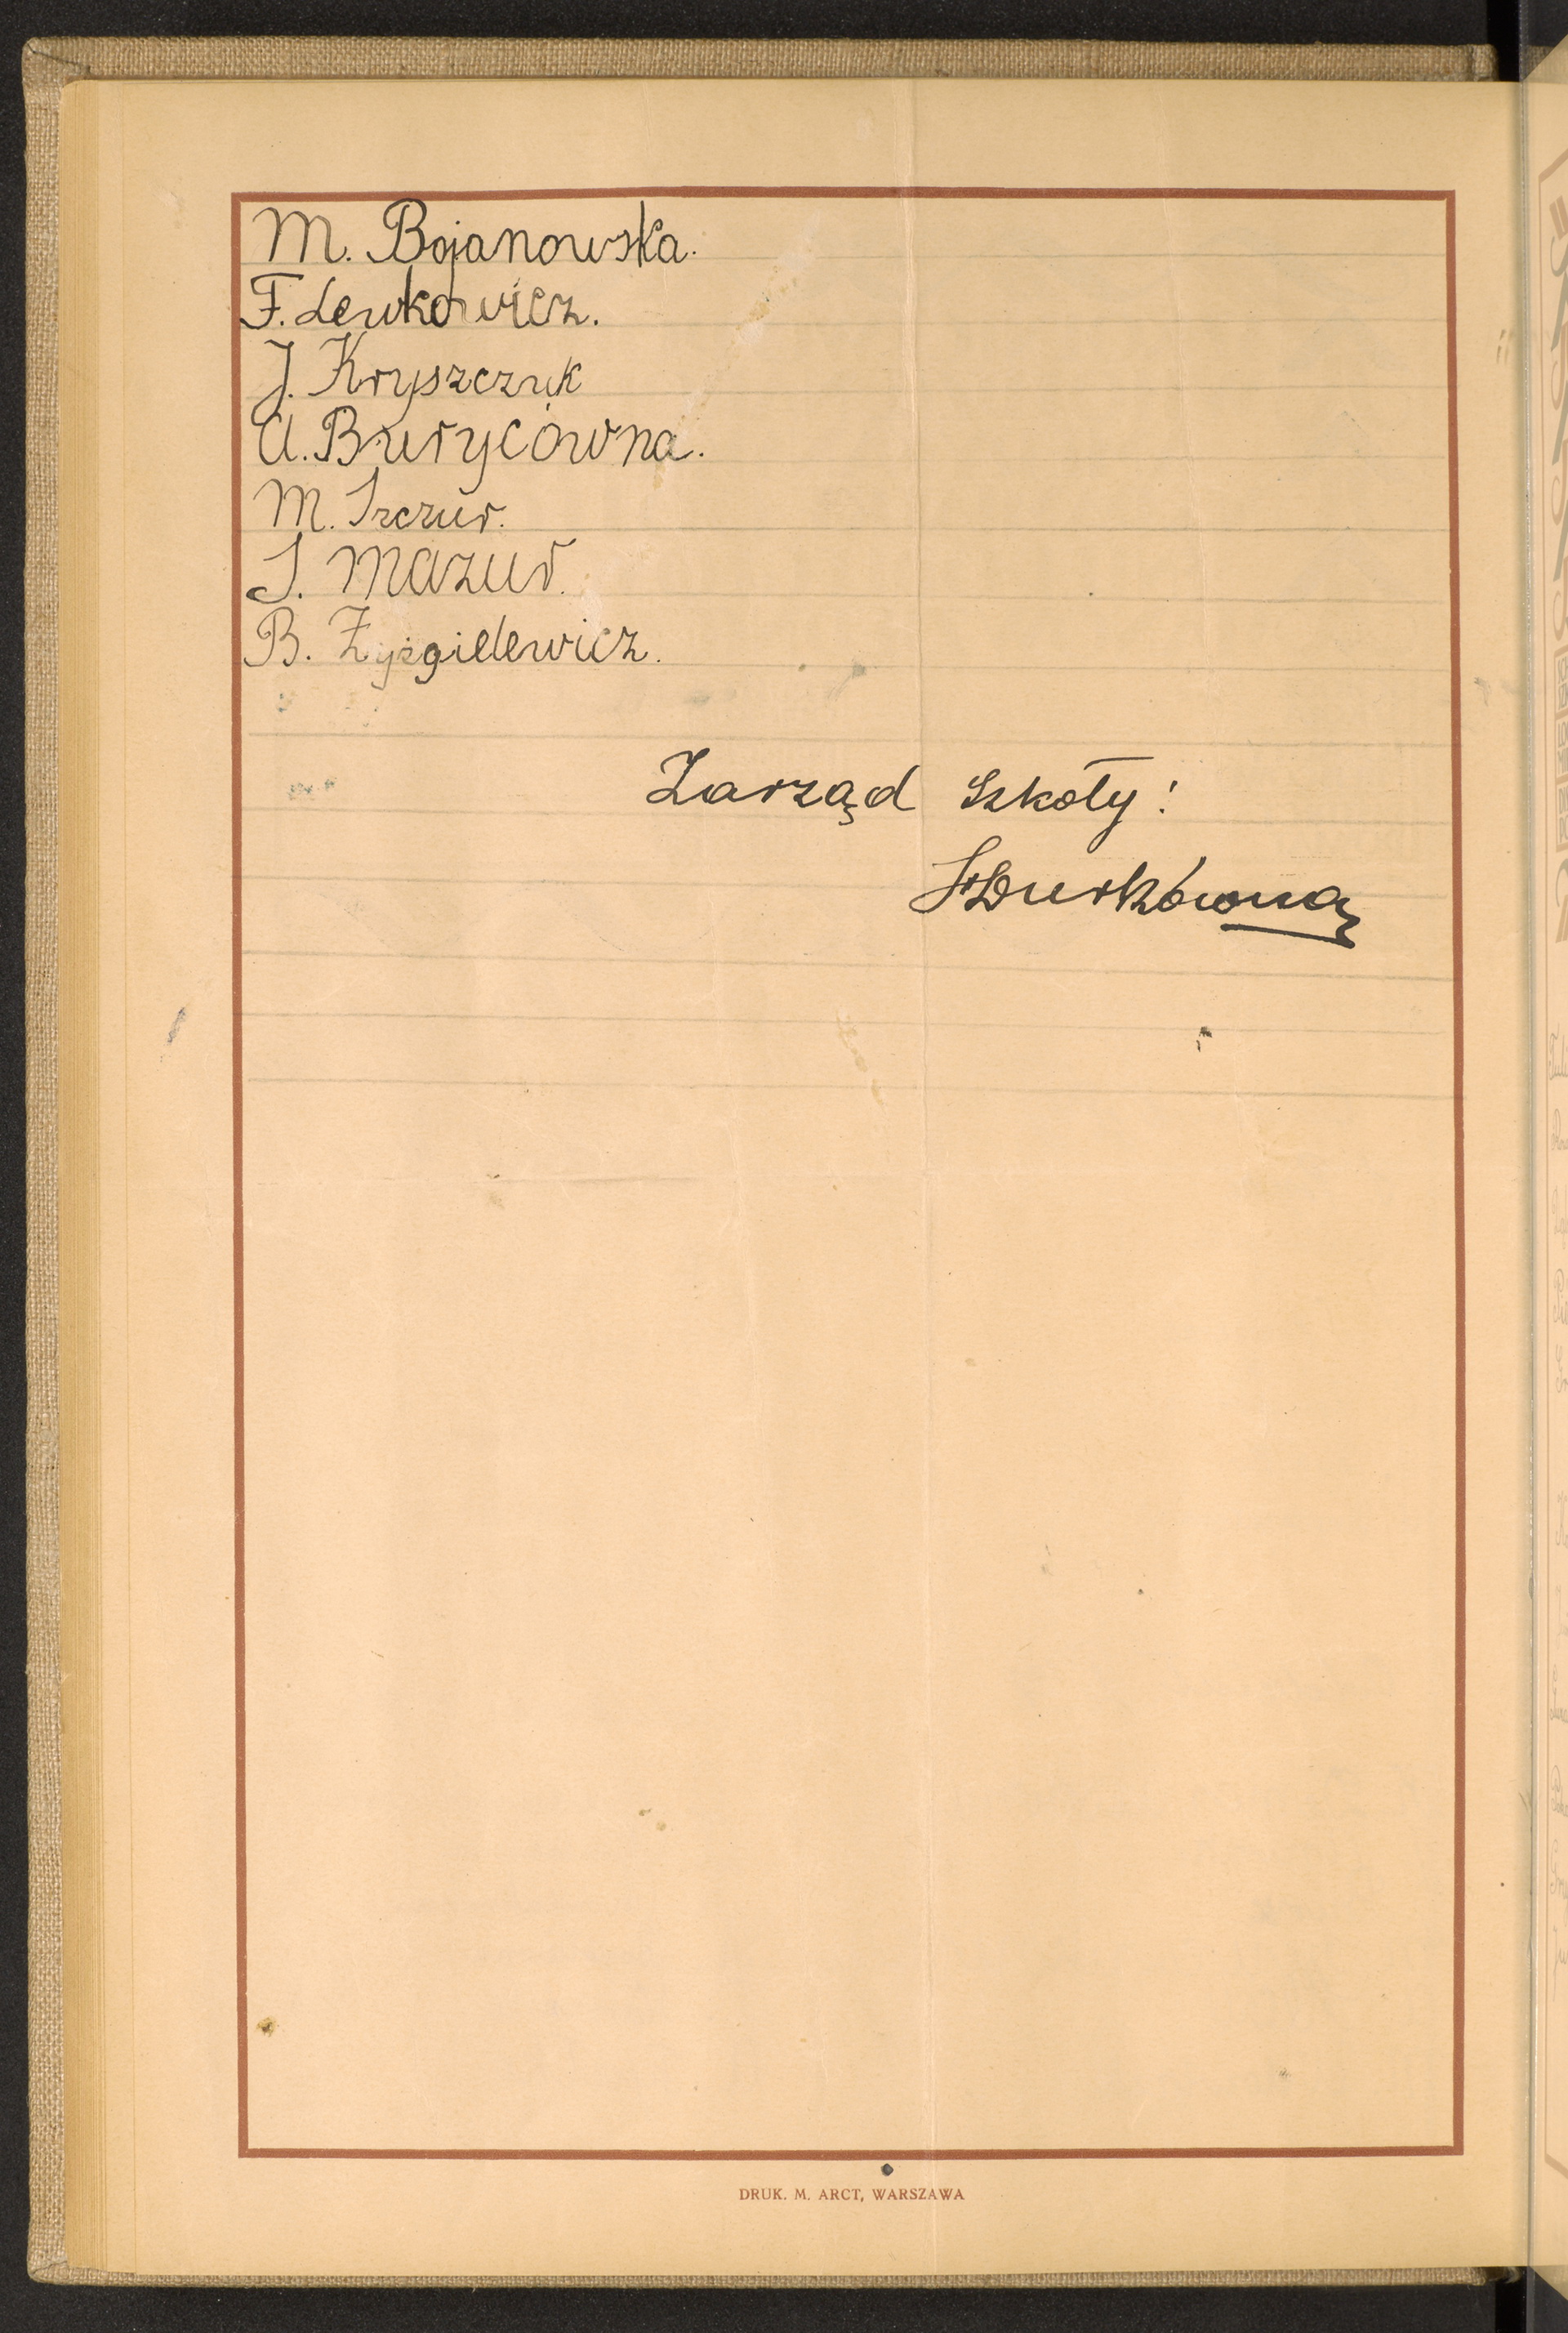 M. Bojanowska.
F. Lewkowicz.
J. Kryszczuk
A. Burycówna.
M. Szczur.
S. Mazur.
B. Zyzgielewicz.
Zarząd Szkoły:
Durkówna
DRUK. M. ARCT, WARSZAWA